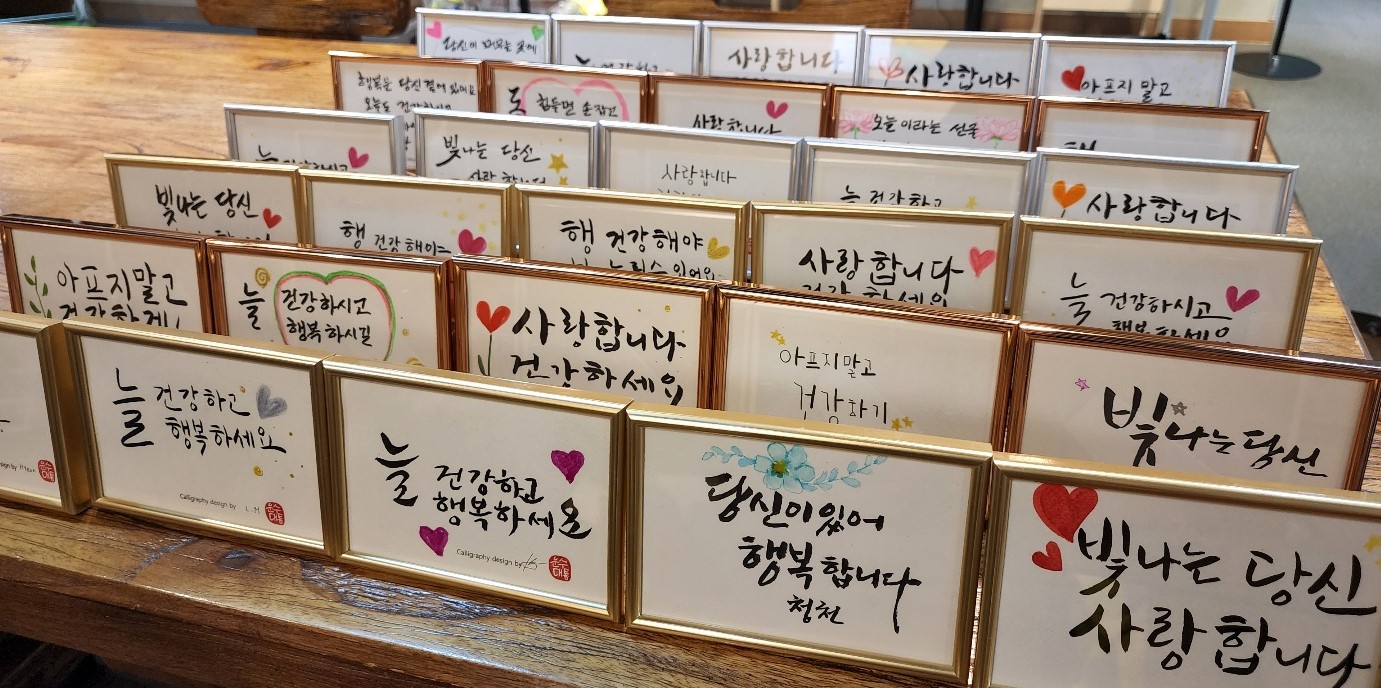 당신이 머무는 곳에
사랑합니다
사랑합니다
아프지 말고
행복은 당신 곁에 있어요
오늘도 건강하세요
힘들면 손잡고
사랑합니다
오늘이라는 선물
빛나는 당신
사랑합니다
늘 건강하고
사랑합니다
빛나는 당신
행 건강해야
행 건강해야
사랑합니다
건강하세요
늘 건강하시고
행복하세요
아프지말고
건강하게
늘 건강하시고
행복하시길
사랑합니다
건강하세요
아프지말고
건강하기
빛나는 당신
늘 건강하고
행복하세요
Calligraphy design by L.M
운수
대통
늘 건강하고
행복하세요
Calligraphy design by
운수
대통
당신이 있어
행복합니다
청천
빛나는 당신
사랑합니다